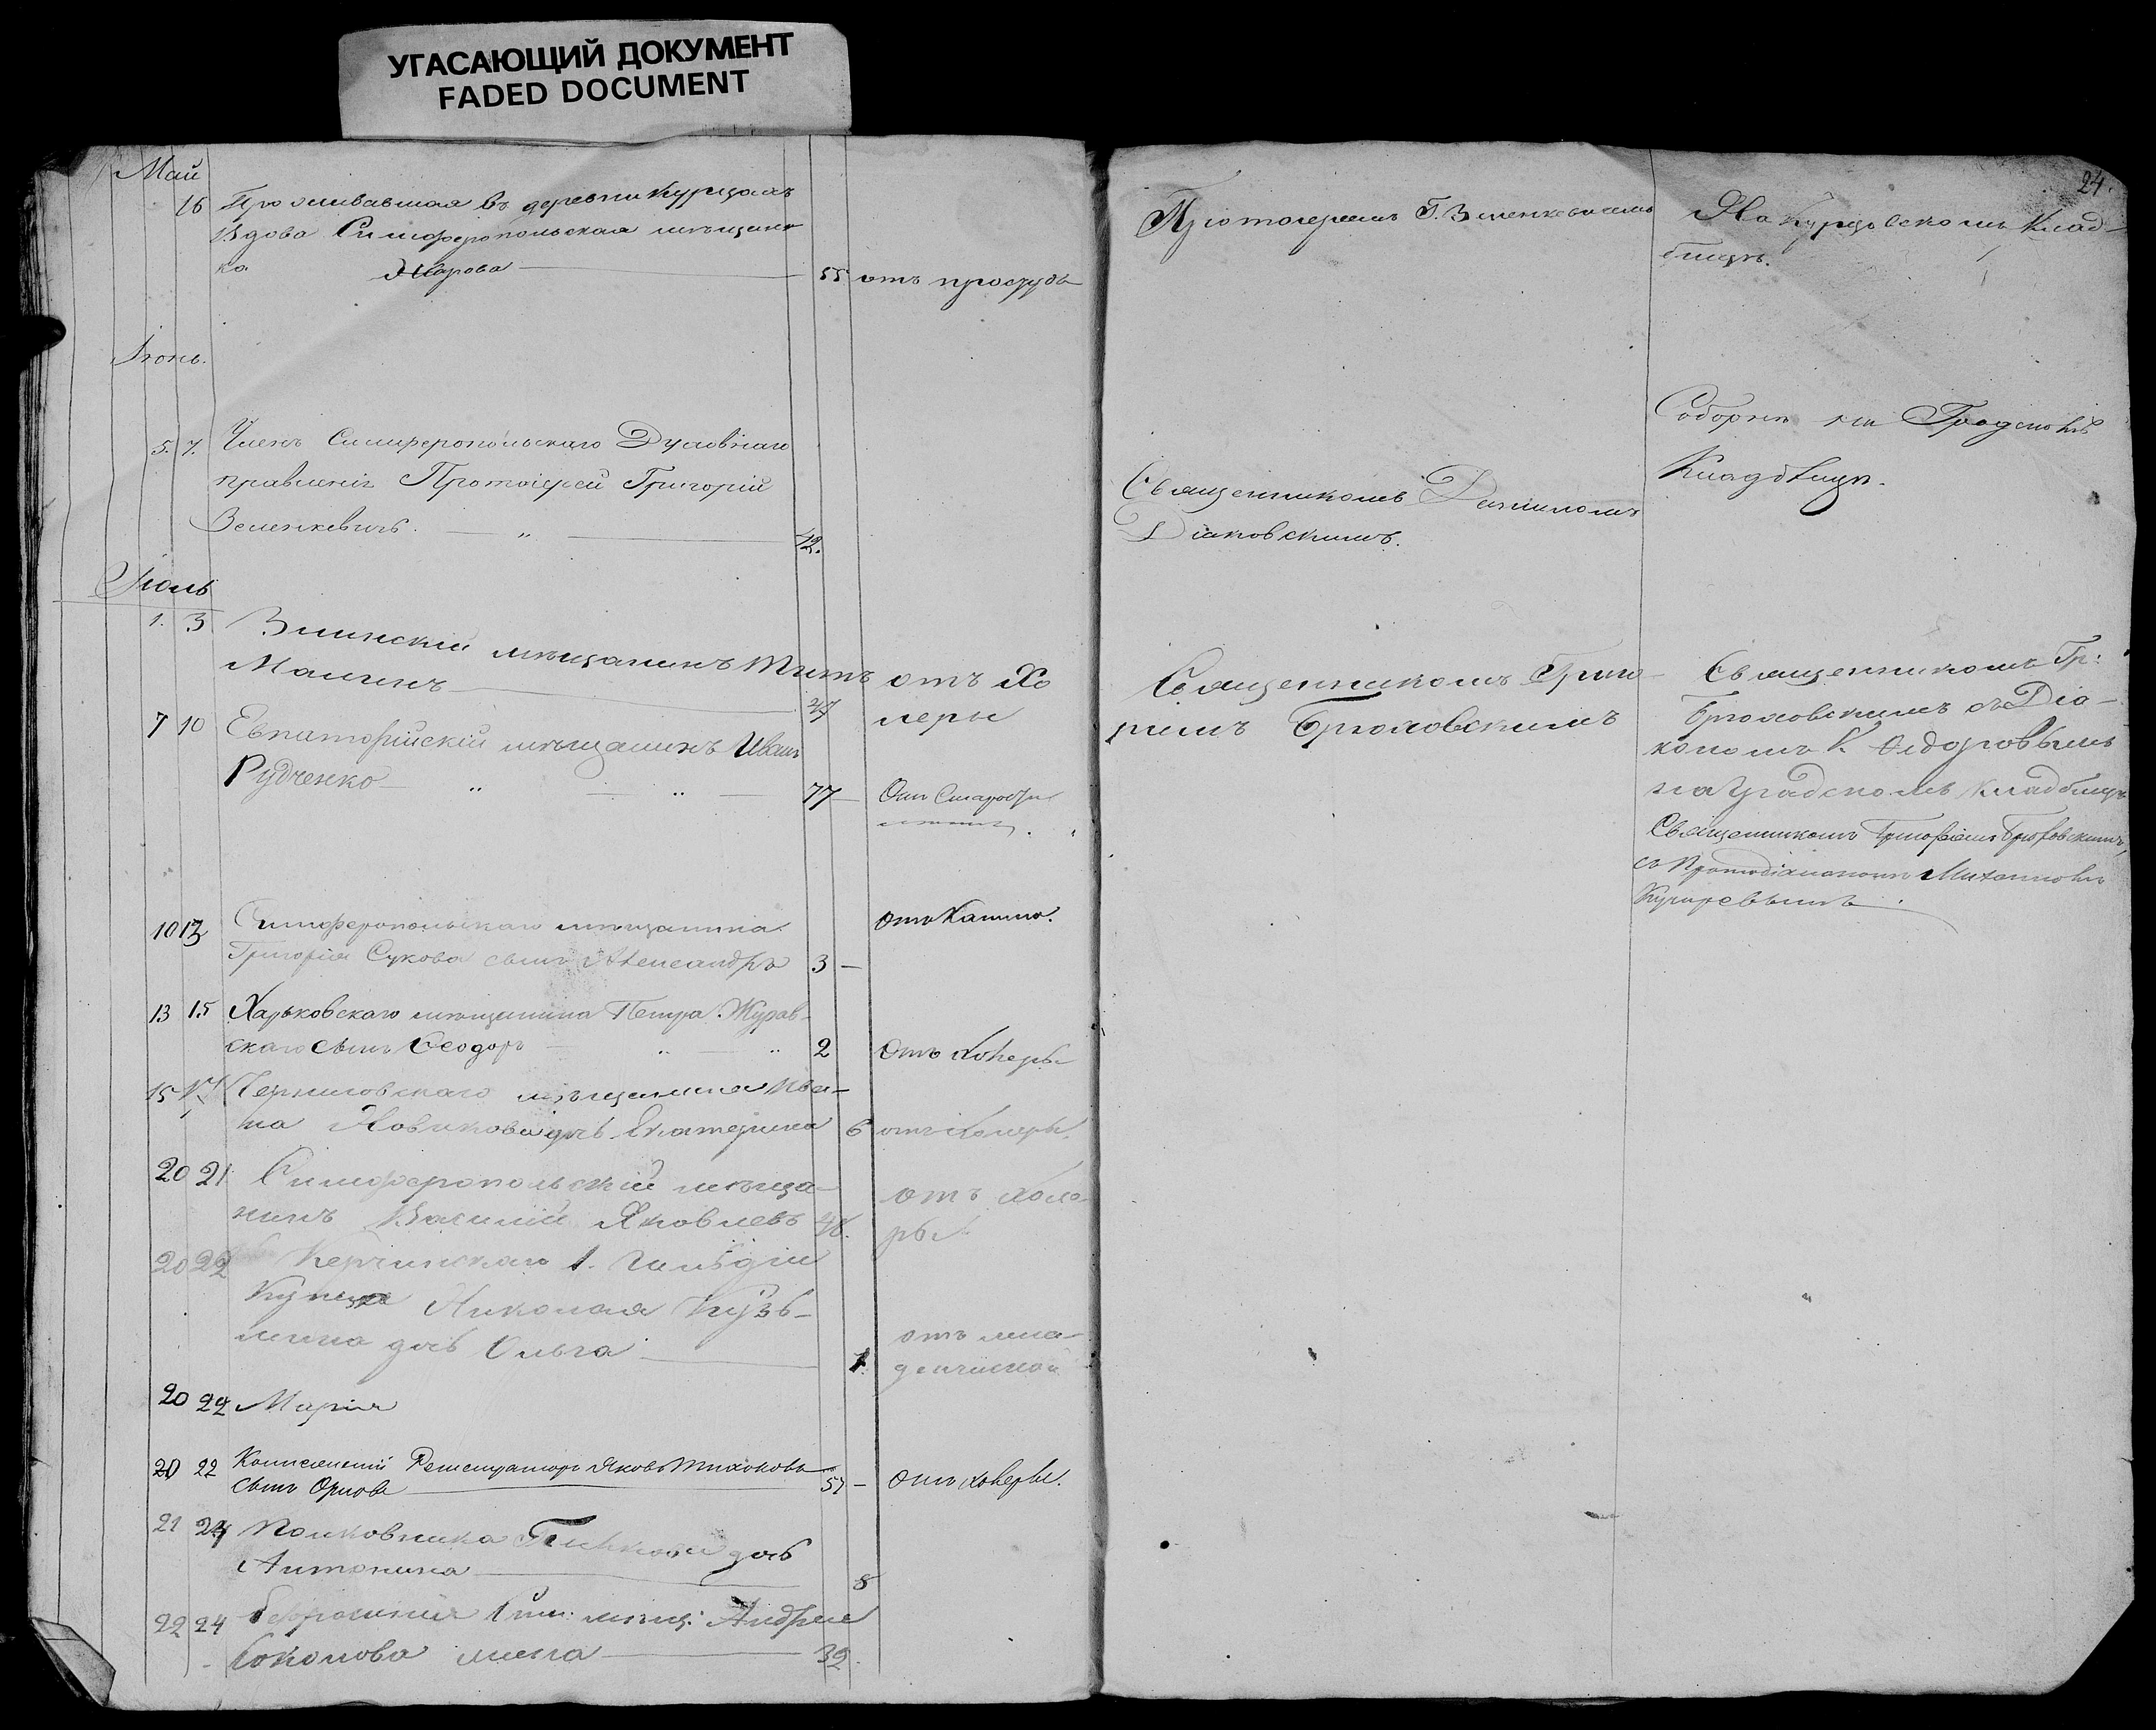 УГАСАЮЩИЙ ДОКУМЕНТ
FADED DOCUMENT
24.
Май
16 Проживавшая въ деревни Курцахъ
Вдова Симферопольская мѣщан
ка 55 отъ простуды
Протоіереемъ Г. Зеленкевичемъ
На Курцовскомъ Клад-
бищѣ.
Іюнь.
5. 7. Членъ Симферопольскаго Духовнаго
правленія Протоіерей Григорій
Зеленкевичъ. — „ — 42.
Священникомъ Даніиломъ
Діаковскимъ.
Соборнѣ на Градскомъ
Кладбищѣ.
Іюль
1. 3 мѣщанинъ Титъ
Малинъ — 47
отъ Хо
леры
Священникомъ Григо-
ріемъ Брюховскимъ
Священникомъ Гр:
Брюховскимъ съ Діа-
кономъ К. Ѳедоровымъ
на градскомъ кладбищѣ
7 10 Евпаторійскій мѣщанинъ Иванъ
Рудченко — „ — „ — 77 — Отъ Старости
Священникомъ Григоріемъ Брюховскимъ,
съ Протодіакономъ Михаиломъ
10 13 Симферопольскаго мѣщанина
Григорія Сукова сынъ Александръ 3 —
Отъ Кашлю.
13 15 Харьковскаго мѣщанина Петра Журав-
скаго сынъ Ѳеодоръ — „ — „ 2 Отъ Холеры
15 17 Черниговскаго мѣщанина Ива-
на Новикова дочь Екатерина 6 отъ Холеры.
20 21 Симферопольскій мѣща-
нинъ Василій Яковлевъ 48.
отъ Холе-
ры.
20 22 Керчинскаго 1. Гильдіи
Купца Николая Кузь-
мина дочь Ольга — 1.
отъ мла-
денческой
20 22 Марія
20 22 Регистраторъ Яковъ Тихоновъ
сынъ Орловъ — 57 — Отъ Холеры.
21 24 Полковника дочь
Антонина — 8
22 24 Сим: мѣщ: Андрея
Соколова жена — 32.